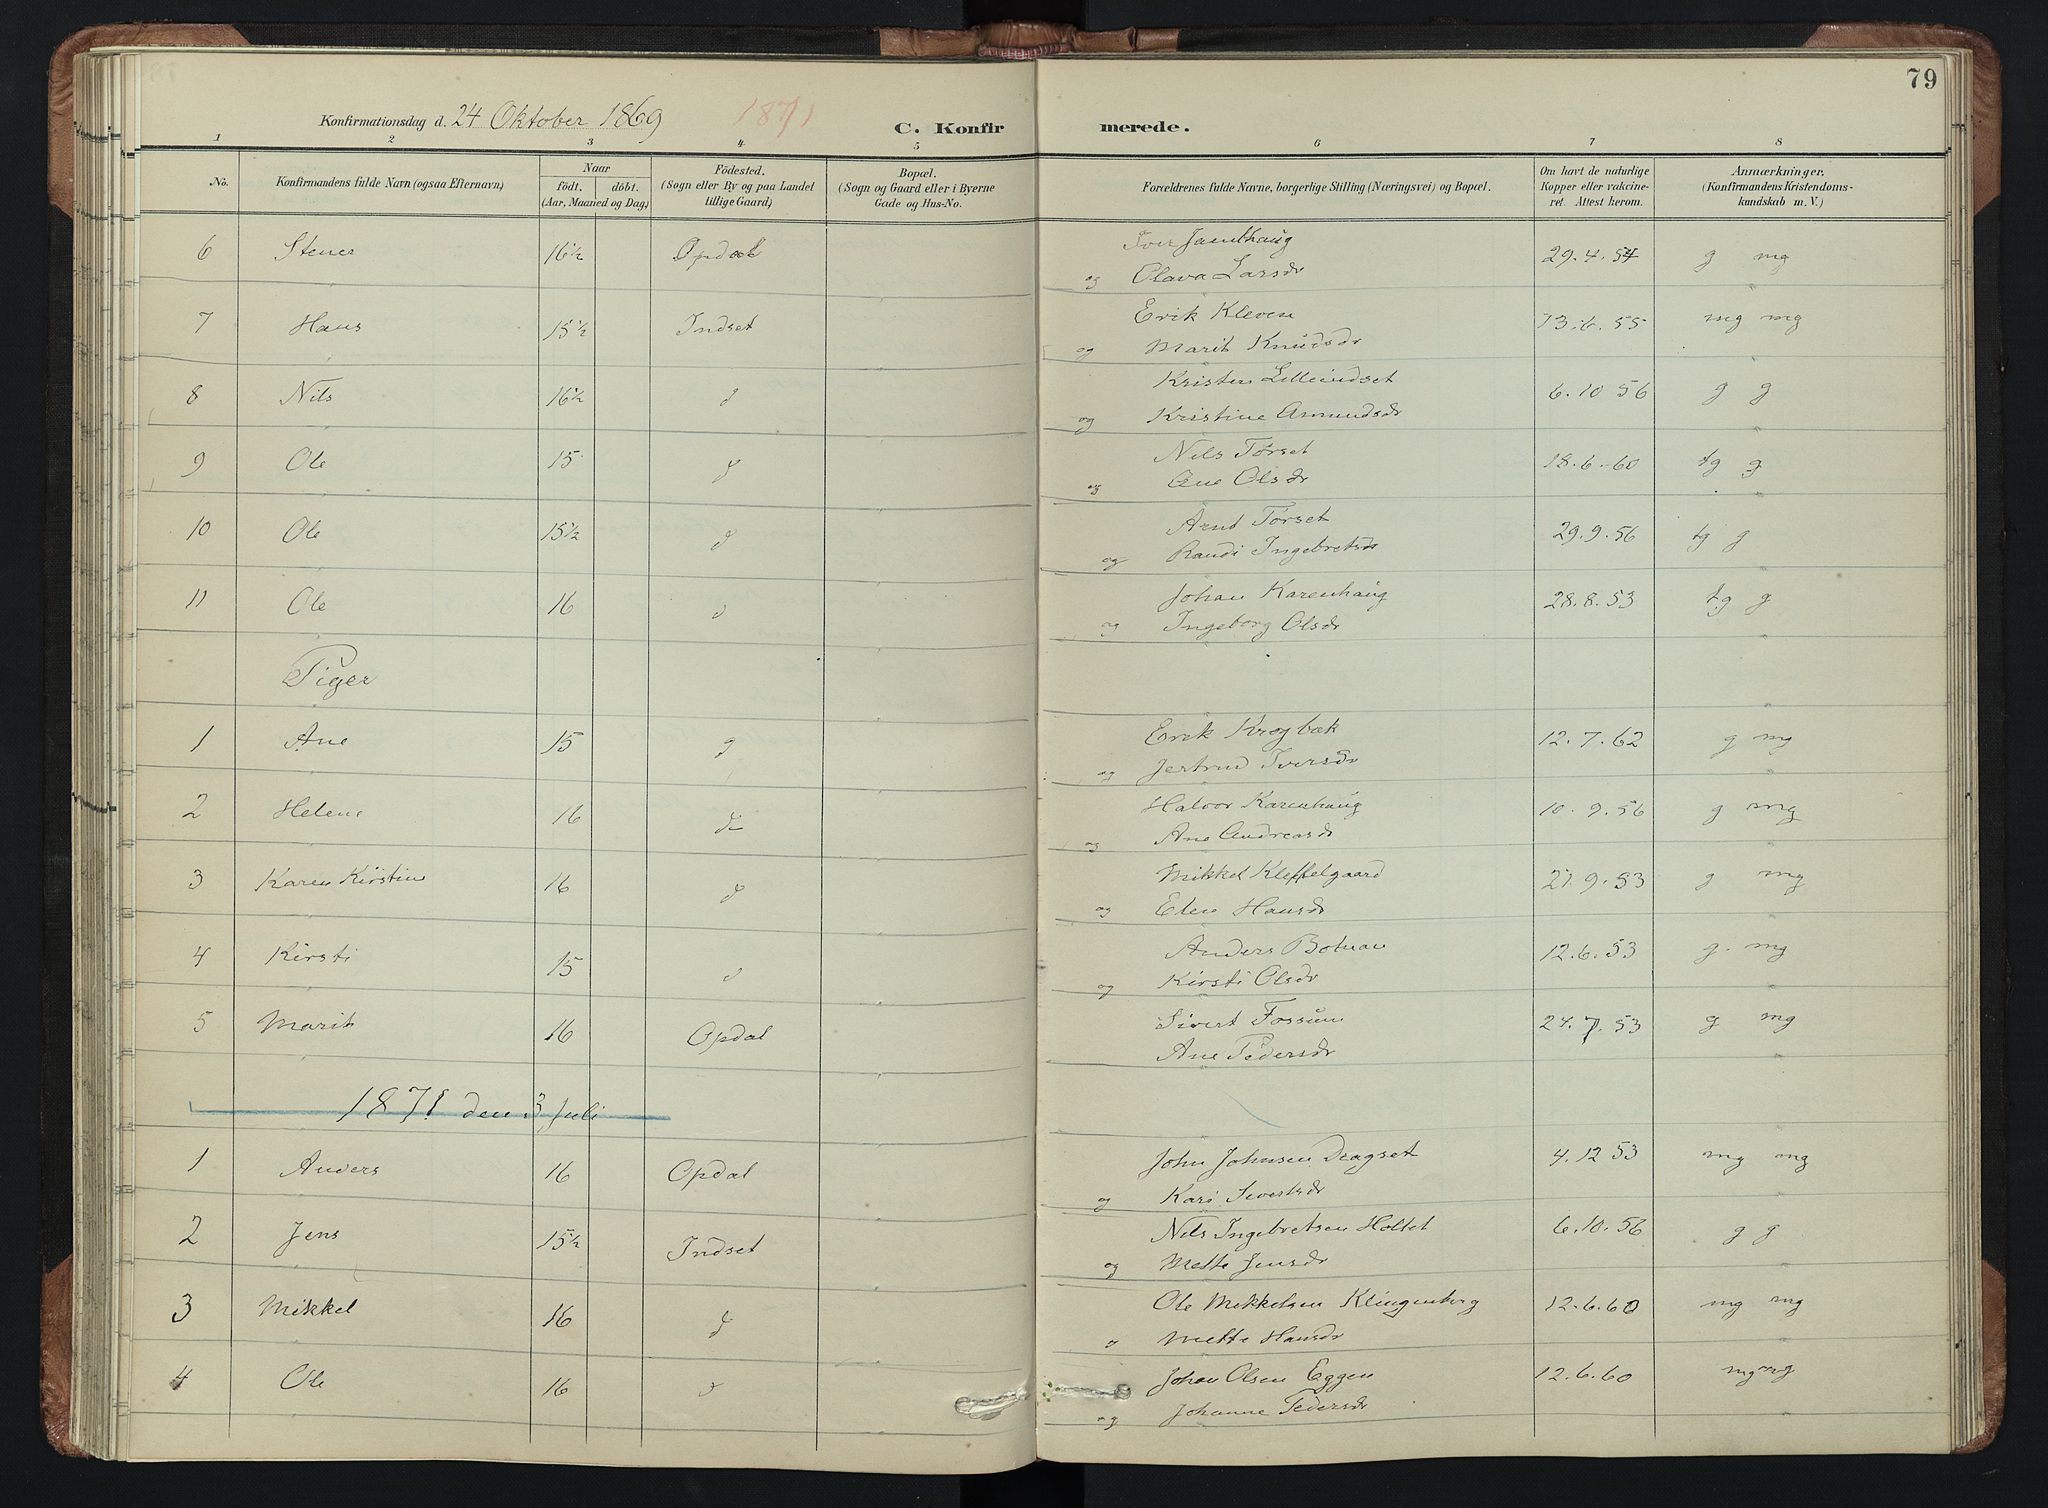 79
Konfirmationsdag d. 24 Oktober 1869 1871
C. Konfirmerede.
1 2 3 4 5 6 7 8
No. Konfirmandens fulde Navn (ogsaa Efternavn) Naar født. døbt. (Aar, Maaned og Dag) Födested. (Sogn eller By og paa Landet tillige Gaard) Bopæl. (Sogn og Gaard eller i Byerne Gade og Hus-No. Forældrenes fulde Navne, borgerlige Stilling (Næringsvei) og Bopæl. Om havt de naturlige Kopper eller vakcineret. Attest herom. Anmærkninger. (Konfirmandens Kristendomskundskab m. V.)
6 Stener 16½ Opdal Iver Jamthaug 29.4.54 g mg
og Olava Larsdr
7 Hans 15½ Indset Erik Kleven 13.6.55 mg mg
og Marit Knudsdr
8 Nils 16½ Kristen Lilleindset 6.10 56 g g
og Kristine Amundsdr
9 Ole 15 Nils Tørset 18.6.60 tg g
og Ane Olsdr
10 Ole 15½ Arnt Tørset 29.9.56 tg g
og Randi Ingebretsdr
11 Ole 16 Johan Karenhaug 28.8.53 tg g
og Ingeborg Olsdr
Piger
1 Ane 15 Erik Krogbæk 12.7.62 g mg
og Jertrud Iversdr
2 Helene 16 Halvor Karenhaug 10.9.56 g mg
og Ane Andreasdr
3 Karen Kirstine 16 Mikkel Kleffelgaard 27.9.53 g mg
og Elen Hansdr
4 Kirsti 15 Anders Botnan 12.6.53 g. mg
og Kirsti Olsdr
5 Marit 16 Opdal Sivert Fossum 24.7.53 g mg
Ane Pedersdr
1871 den 3 Juli
1 Anders 16 Opdal John Johnsen Dragset 4.12 53 mg mg
og Kari Sivertsdr
2 Jens 15½ Indset Nils Ingebretsen Holtet 6.10.56 g g
og Mette Jensdr
3 Mikkel 16 Ole Mikkelsen Klingenberg 12.6.60 mg mg
Mette Hansdr
4 Ole 16 Johan Olsen Eggen 12.6.60 mg mg
og Johanne Pedersdr